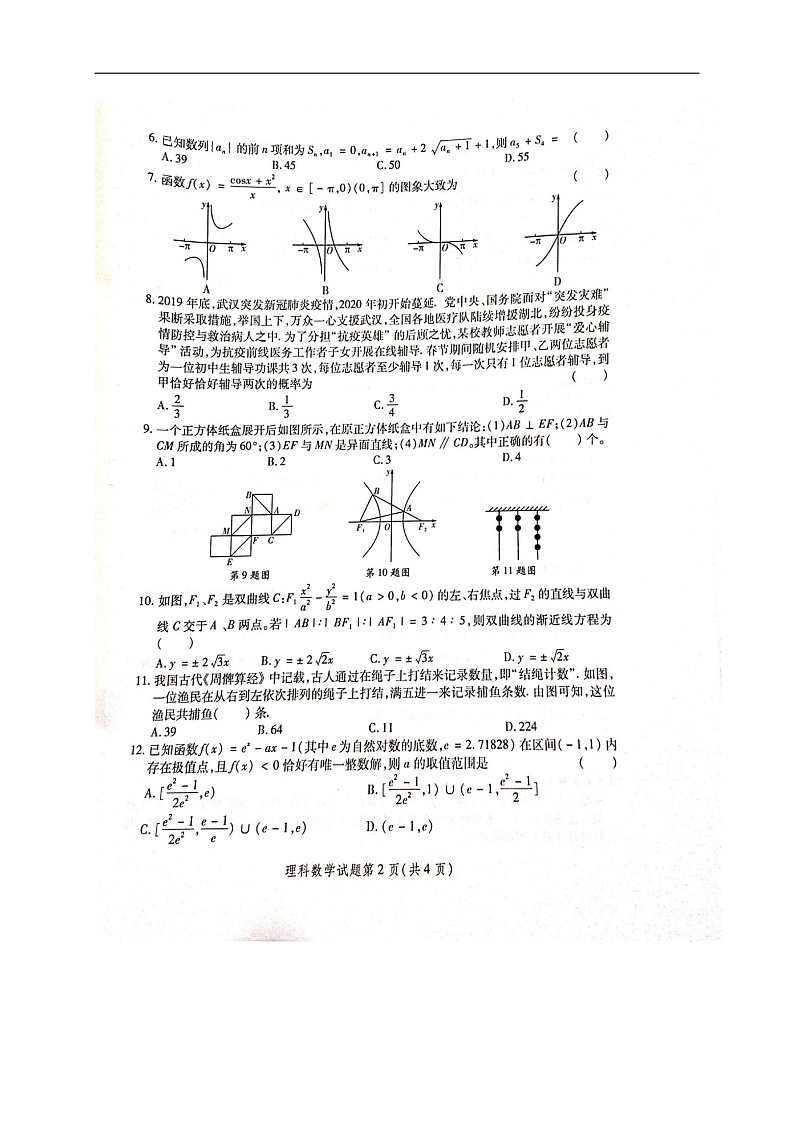 6. 已知数列{aₙ}的前n项和为Sₙ,a₁ = 0,aₙ₊₁ = aₙ + 2√(aₙ + 1) + 1,则a₅ + S₄ = ( )
A. 39 B. 45 C. 50 D. 55
7. 函数f(x) = (cosx + x²)/x, x ∈ [ - π,0)(0,π] 的图象大致为 ( )
y y y y
-π O π x -π O π x -π O π x -π O π x
A B C D
8. 2019 年底,武汉突发新冠肺炎疫情,2020 年初开始蔓延. 党中央、国务院面对“突发灾难”
果断采取措施,举国上下,万众一心支援武汉,全国各地医疗队陆续增援湖北,纷纷投身疫
情防控与救治病人之中. 为了分担“抗疫英雄”的后顾之忧,某校教师志愿者开展“爱心辅
导”活动,为抗疫前线医务工作者子女开展在线辅导. 春节期间随机安排甲、乙两位志愿者
为一位初中生辅导功课共 3 次,每位志愿者至少辅导 1 次,每一次只有 1 位志愿者辅导,到
甲恰好恰好辅导两次的概率为 ( )
A. 2/3 B. 1/3 C. 3/4 D. 1/2
9. 一个正方体纸盒展开后如图所示,在原正方体纸盒中有如下结论:(1)AB ⊥ EF;(2)AB 与
CM 所成的角为 60°;(3)EF 与 MN 是异面直线;(4)MN ∥ CD。其中正确的有( )个。
A. 1 B. 2 C. 3 D. 4
B N A D M F C E
y B A F₁ O F₂ x
第 9 题图 第 10 题图 第 11 题图
10. 如图,F₁、F₂ 是双曲线 C:F₁ x²/a² - y²/b² = 1(a > 0,b < 0) 的左、右焦点,过 F₂ 的直线与双曲
线 C 交于 A 、B 两点。若 | AB |∶| BF₁ |∶| AF₁ | = 3∶4∶5,则双曲线的渐近线方程为
( )
A. y = ± 2√3x B. y = ± 2√2x C. y = ± √3x D. y = ± √2x
11. 我国古代《周髀算经》中记载,古人通过在绳子上打结来记录数量,即“结绳计数”. 如图,
一位渔民在从右到左依次排列的绳子上打结,满五进一来记录捕鱼条数. 由图可知,这位
渔民共捕鱼( )条.
A. 39 B. 64 C. 11 D. 224
12. 已知函数f(x) = eˣ - ax - 1(其中 e 为自然对数的底数,e = 2. 71828) 在区间( - 1,1) 内
存在极值点,且f(x) < 0 恰好有唯一整数解,则 a 的取值范围是 ( )
A. [(e² - 1)/2e²,e) B. [(e² - 1)/2e²,1) ∪ (e - 1,(e² - 1)/2]
C. [(e² - 1)/2e²,(e - 1)/e) ∪ (e - 1,e) D. (e - 1,e)
理科数学试题第 2 页(共 4 页)